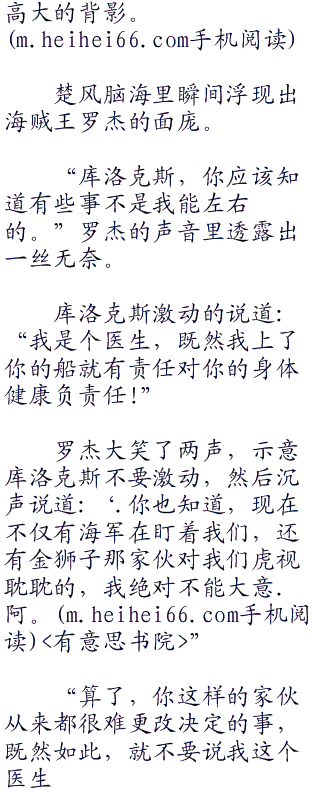 高大的背影。
(m.heihei66.com手机阅读)
楚风脑海里瞬间浮现出
海贼王罗杰的面庞。
“库洛克斯，你应该知
道有些事不是我能左右
的。”罗杰的声音里透露出
一丝无奈。
库洛克斯激动的说道：
“我是个医生，既然我上了
你的船就有责任对你的身体
健康负责任!”
罗杰大笑了两声，示意
库洛克斯不要激动，然后沉
声说道：‘.你也知道，现在
不仅有海军在盯着我们，还
有金狮子那家伙对我们虎视
眈眈的，我绝对不能大意.
阿。(m.heihei66.com手机阅
读)<有意思书院>”
“算了，你这样的家伙
从来都很难更改决定的事，
既然如此，就不要说我这个
医生